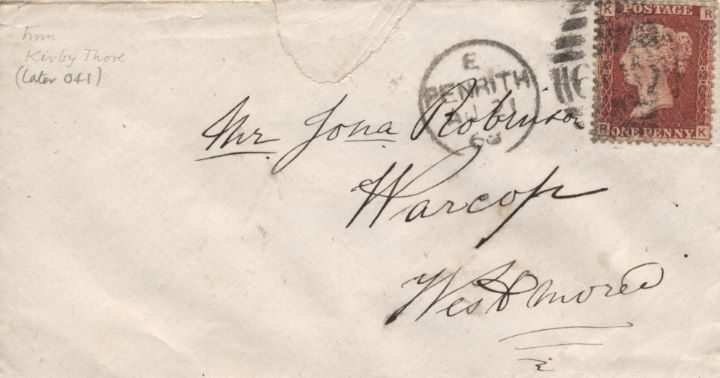 From
Kirkby Thore
(Later 041)
E
PENRITH
AU 1
69
K POSTAGE R
R ONE PENNY K
Mr Jona Robinson
Warcop
Westmored